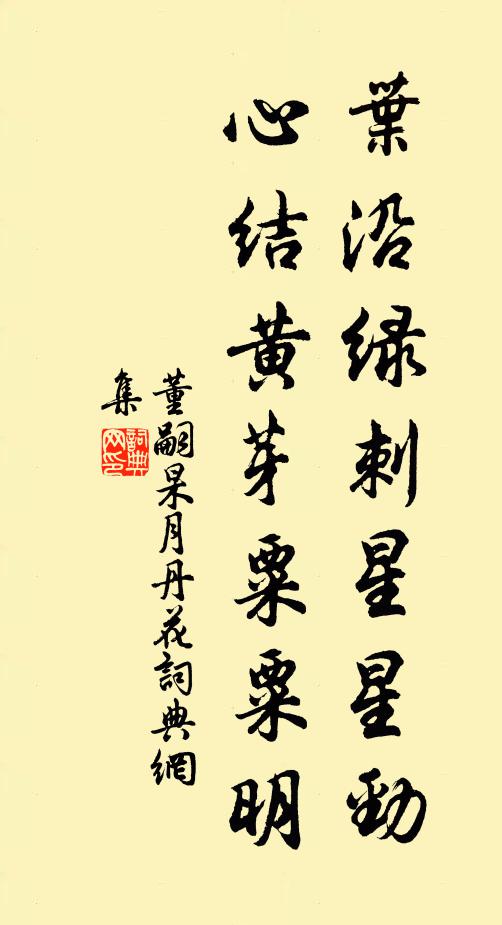 葉沿緑刺星星勁
心结黄芽粟粟明
董嗣杲月丹花詞典網
集
詞典
网印